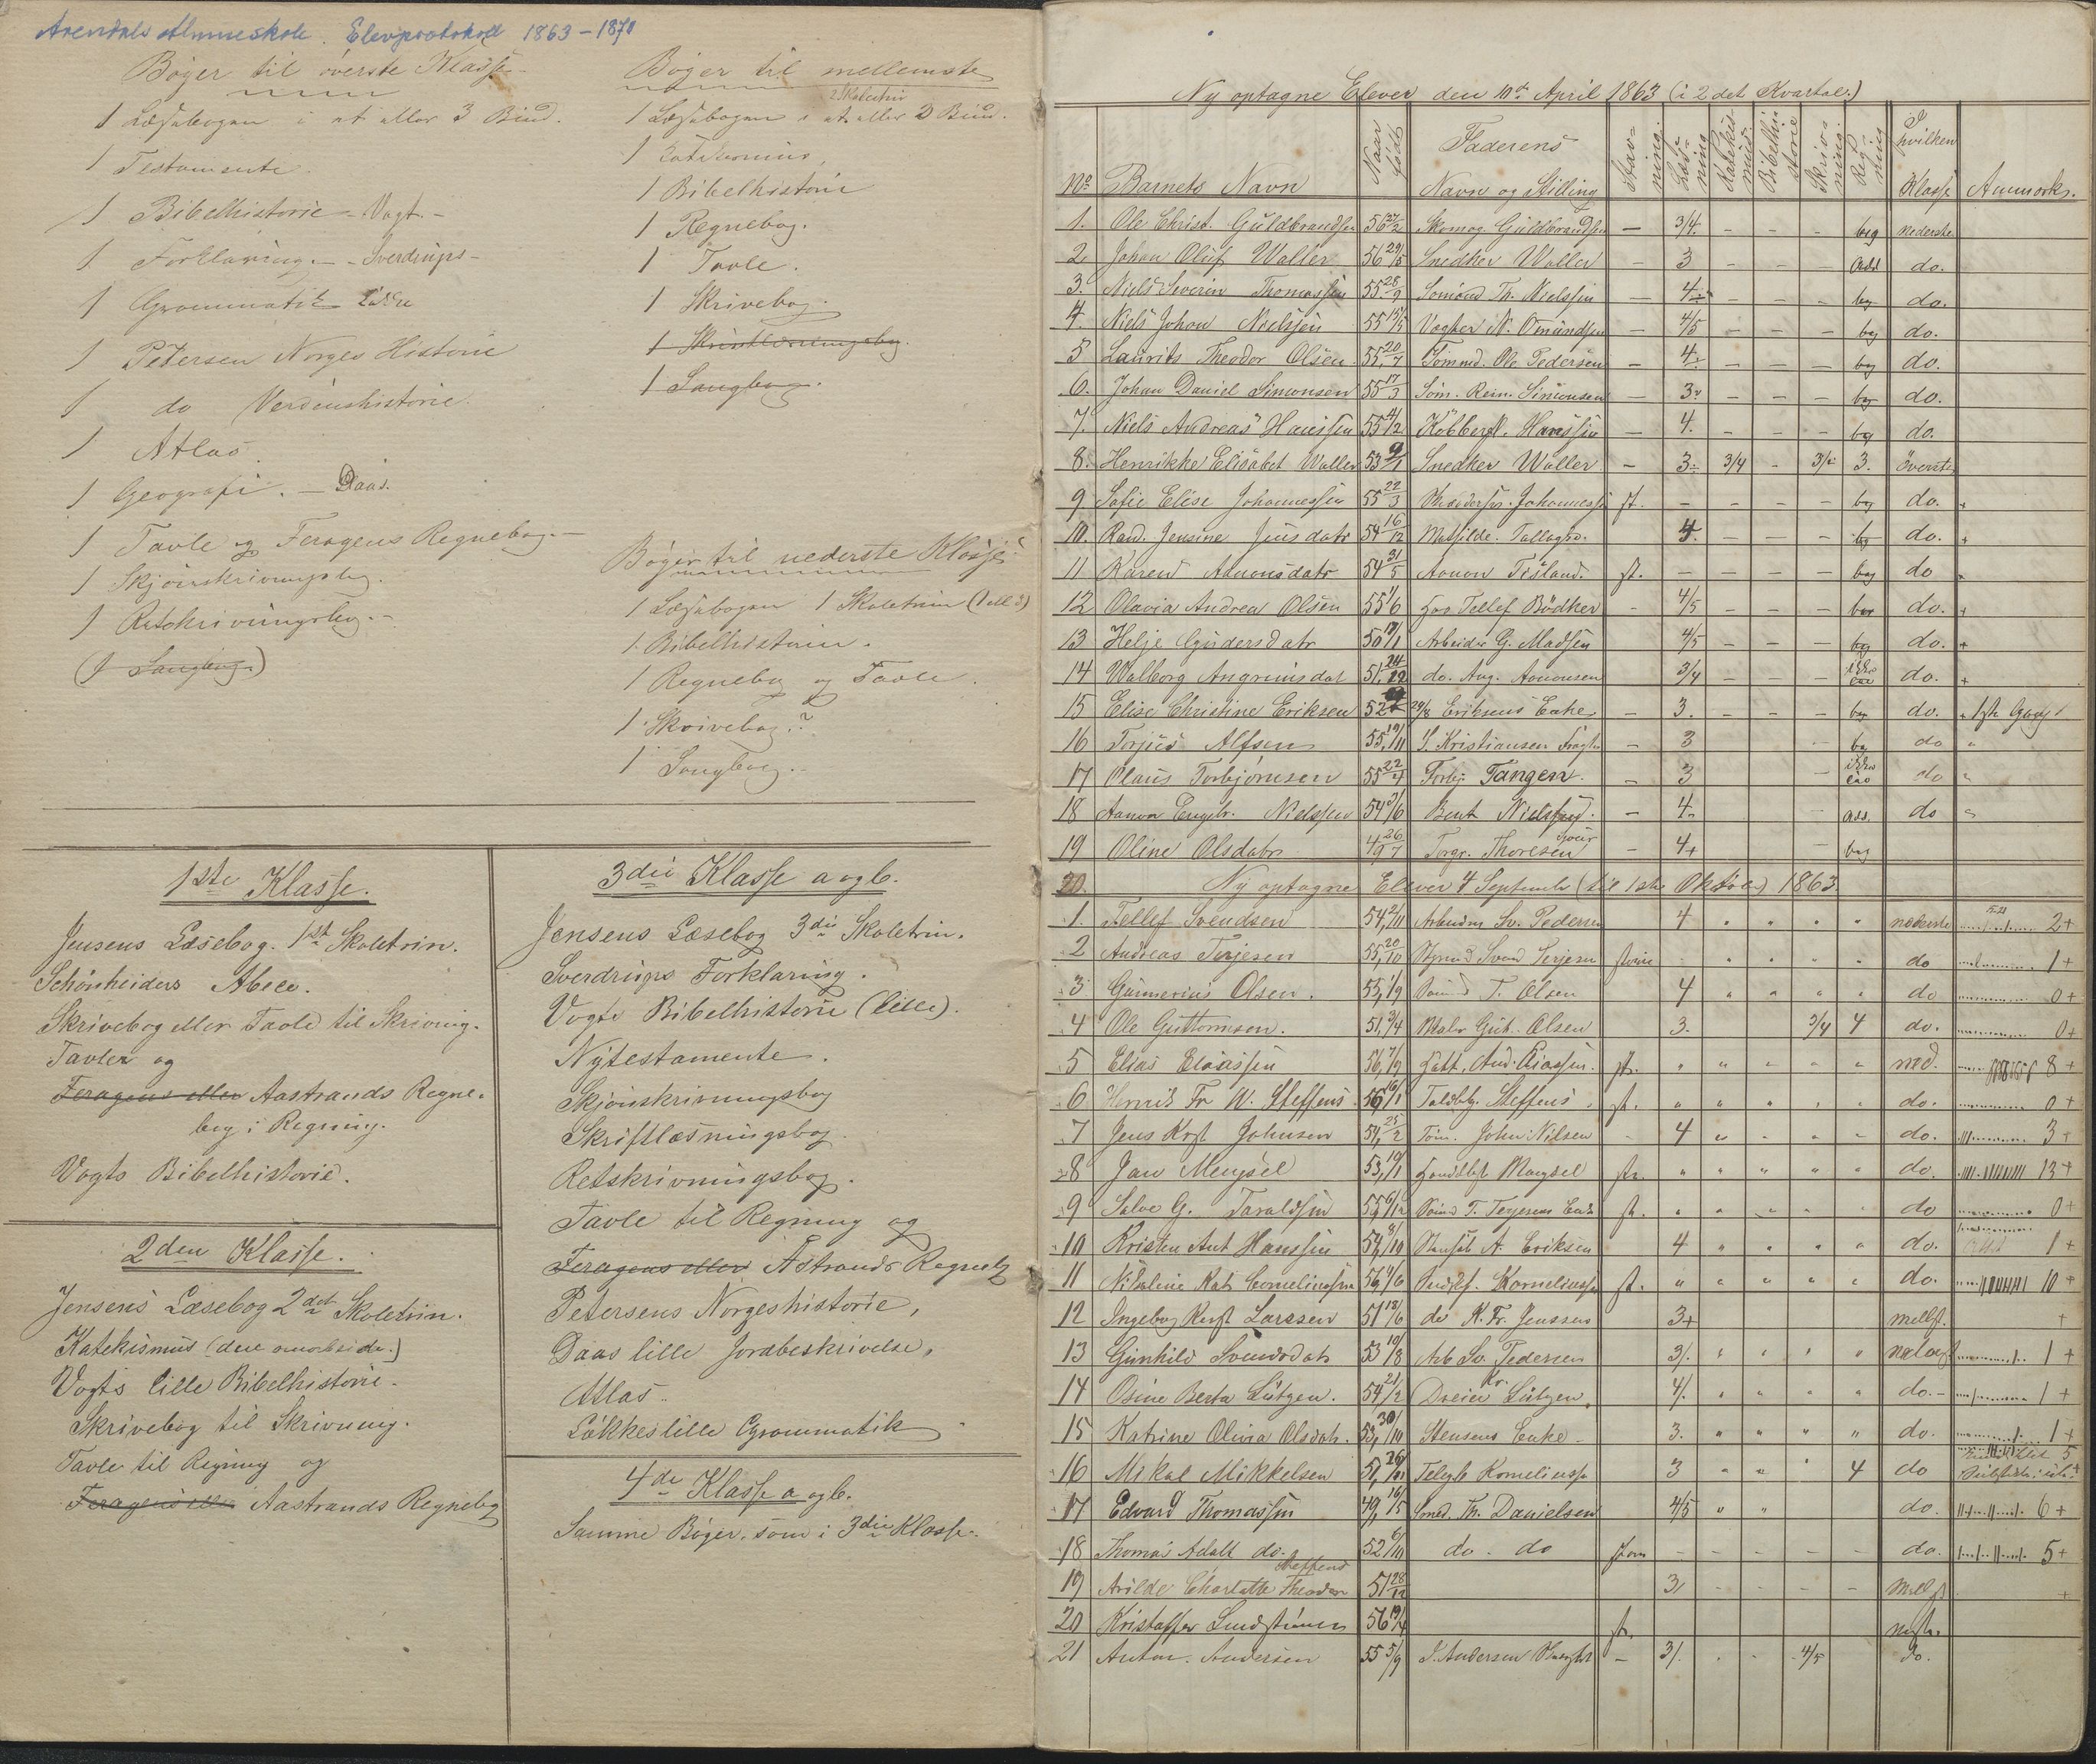 Arendals Almueskole. Elevprotokoll 1863-1870
Bøger til øverste Klasse
1 Læsebogen i et eller 3 Bind.
1 Testamente.
1 Bibelhistorie - Vogt. -
1 Forklaring. - Sverdrups -
1 Grammatik Løkke
1 Petersen Norges Historie
1 do Verdenshistorie.
1 Atlas.
1 Geografi. - Daas.
1 Tavle og Feragens Regnebog. -
1 Skjønskrivningsbog.
1 Retskrivningsbog. -
(1 Sangbog.)
Bøger til mellemste
2 Skoletrin
1 Læsebogen i et eller 3 Bind.
1 Katekismus,
1 Bibelhistorie
1 Regnebog.
1 Tavle.
1 Skrivebog.
1 Skriftlæsningsbog.
1 Sangbog.
Bøger til nederste Klasse
1 Læsebogen 1 Skoletrin (1 ell 3)
1 Bibelhistorie.
1 Regnebog og Tavle.
1 Skrivebog?
1 Sangbog. -
1ste Klasse.
Jensens Læsebog. 1st Skoletrin.
Schönheiders Abece.
Skrivebog eller Tavle til Skrivnig.
Tavler og
Feragens eller Aastrands Regne-
bog i Regning.
Vogts Bibelhistorie.
2den Klasse.
Jensens Læsebog 2det Skoletrin.
Katekismus
Vogts lille Bibelhistorie -
Skrivebog til Skrivning.
Tavle til Regning og
Feragens eller Aastrands Regnebog
3die Klasse a og b.
Jensens Læsebog 3die Skoletrin.
Sverdrups Forklaring.
Vogts Bibelhistorie (lille).
Nytestamente.
Skjönskrivningsbog
Skriftlæsningsbog.
Retskrivningsbog.
Tavle til Regning og
Feragens eller Åstrands Regnebg
Petersens Norgeshistorie,
Daas lille Jordbeskrivelse,
Atlas.
Løkkes lille Grammatik
4de Klasse a og b.
Samme Bøger, som i 3die Klasse.
Ny optagne Elever den 10de April 1863 (i 2det Kvartal.)
No Barnets Navn Naar født Faderens Navn og Stilling Stavning. Læsning Katekismus Bibelhistorie Skrivning. Regning I hvilken Klasse Anmærkn.
1. Ole Christ. Guldbrandsen 56 27/2 Skomag Guldbrandsen - 3/4. - - - beg nederste
2. Johan Oluf Waller 56 29/5 Snedker Waller - 3 - - - Add do.
3. Niels Severin Thomassen 55 28/9 Sömand Th. Nielssen - 4 - - - beg do.
4. Niels Johan Nielsen 55 15/5 Vagter N. Omundsen - 4/5 - - - beg do.
5 Laurits Theodor Olsen 55. 20/7 Tömmd. Ole Pedersen - 4. - - - beg do.
6. Johan Daniel Simonsen 55 17/3 Söm. Reim. Simonsen - 3 - - - beg do.
7. Niels Andreas Hanssen 55 4/12 Kobbersl. Hanssen - 4. - - - beg do.
8. Henrikke Elisabet Waller 53 9/1 Snedker Waller - 3 3/4 - 3 3. överste
9 Sofie Elise Johannessen 55 22/3 Johannessen st. - - - - beg do. +
10. Rand. Jensine Jensdatr 54 16/12 Matilde. 4. - - - beg do. +
11 Karen Aanonsdatr 54 31/5 Aanon st. - - - - beg do
12 Olavia Andrea Olsen 55 1/6 Tellef Bødker - 4/5 - - - beg do. +
13 Helje Gundersdatr 50 17/1 Arbeider G. Madsen 4/5 - - - beg do. +
14 Walborg Angrimsdat 51. 24/12 do. Ang. Aanonsen 3/4 - - - do. +
15 Elise Christine Eriksen 52 29/8 Eriksens Enke - 3. - - - beg do. + 1ste Gang
16 Torjus Alfsen 55, 19/11 S. Kristiansen - 3 - beg do "
17 Olaus Torbjörnsen 55 22/4 Torbj. Tangen. - 3 - do "
18 Aanon Engebr. Nielssen 54 3/6 Bent Nielssen. - 4. - add. do "
19 Oline Olsdatr 49 26/7 Torgr. Thoresen - 4+ - beg
20. Ny optagne Elever 4 September (til 1ste Oktober) 1863.
1. Tellef Svendsen 54, 2/11 Arbeider Sv. Pedersen 4 " " " " nederste 2+
2 Andreas Terjesen 55, 20/10 Svend Terjesen " " " " do 1+
3 Gunnerius Olsen. 55, 1/9 T. Olsen 4 " " " " do 0+
4 Ole Guttormsen. 51, 3/4 Maler Gut. Olsen 3. 3/4 4 do. 0+
5 Elias Eliassen 56, 7/9 And. Eliassen. st. " " " " " ned. 8+
6 Henrik Fr W. Steffens 56, 16/1 Toldbtj. Steffens. st. " " " " " do. 0+
7 Jens Krist Johnsen 54, 25/2 Töm. John Nilsen - 4 " " " " do. 3+
8 Jan Meysel 53, 19/1 Meysel st. " " " " " do. 13+
9 Salve G. Taraldsen 55, 6/12 T. Terjesens Enke st. " " " " do 0+
10 Kristen Ant Hanssen 54, 8/10 A. Eriksen 4 " " " " do. 1+
11 Nikoline Kat Corneliussen 56, 4/6 Korneliussen st. " " " " " do. 10+
12 Ingebog Kirst Larssen 51 18/6 do K. Fr. Jenssens 3+ mellst. +
13 Gunhild Svendsdatr 53 19/8 Arb Sv. Pedersen 3/. " " " " nederst 1+
14 Osine Berta Lütgen. 54, 21/2 Dreier Kr. Lütgen, 4/. " " " " do.- 1+
15 Katrine Olivia Olsdatr. 53, 30/10 Stensens Enke - 3. " " " " do. 1+
16 Mikal Mikkelsen 51, 26/11 Telegb Korneliussen 3 " " " 4 do 5
17 Edvard Thomassen 49, 16/5 Smed. Th. Danielsen 4/5 " " do. 6+
18 Thomas Adolf do. 52 6/11 do - do - - - - - do. 5+
19 Arilde Charlotte Theodora Steffens 51 28/12 3/ - - - - Mellst +
20 Kristoffer Lindströmen 56 19/4 st. nest.
21 Anton. Andersen 55 5/9 J. Andersen - 3/. . - 4/5 do.